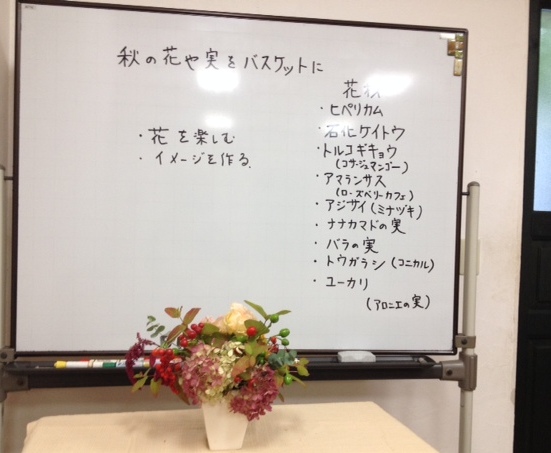 秋の花や実をバスケットに
・花を楽しむ
・イメージを作る.
花材
・ヒペリカム
・石化ケイトウ
・トルコギキョウ
(コサージュマンゴー)
・アマランサス
(ローズベリーカフェ)
・アジサイ(ミナヅキ)
・ナナカマドの実
・バラの実
・トウガラシ(コニカル)
・ユーカリ
(アロニエの実)